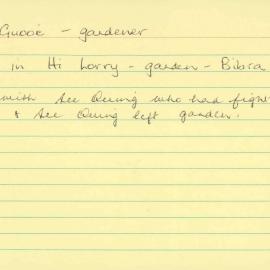 - gardener
in Hi Lorry - garden - Bibra
with Ah Quing who had fight
& Ah Quing left garden.